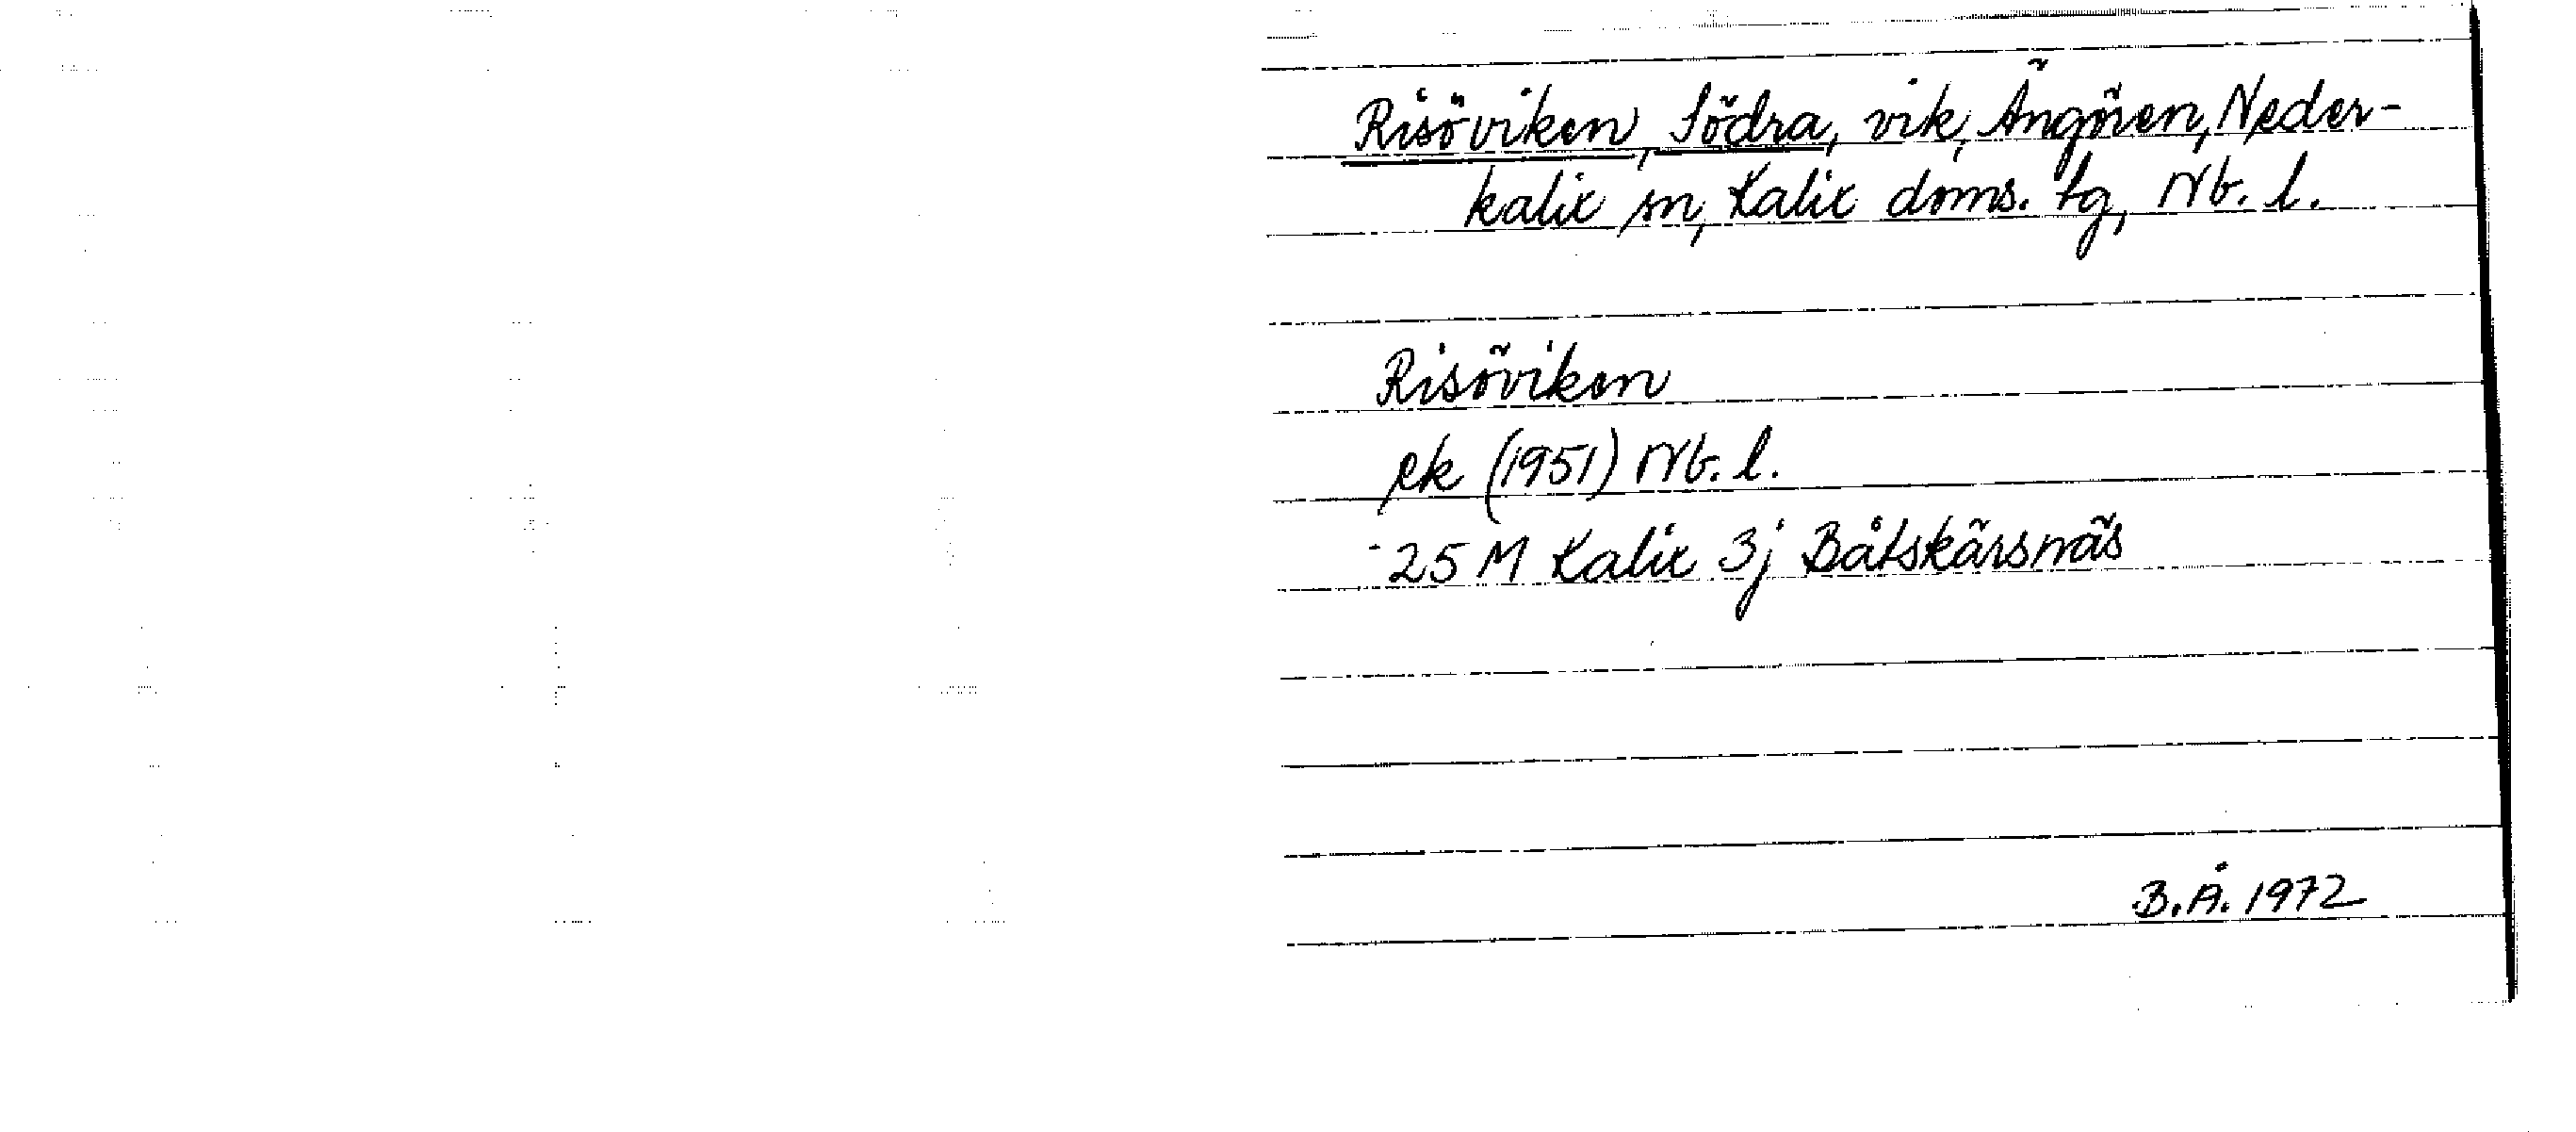 Risöviken, Södra, vik, Ängören, Neder-
kalix sn, Kalix doms. tg, Nb. l.
Risöviken
ek (1951) Nb. l.
25 M Kalix 3j Båtskärsnäs
B.Å. 1972